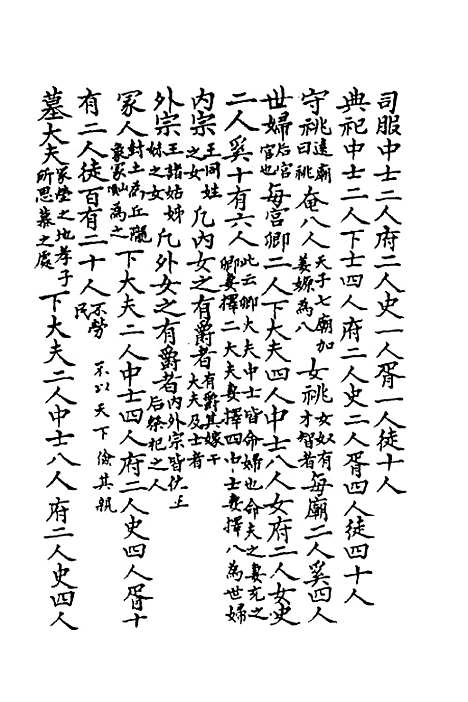 司服中士二人府二人史一人胥一人徒十人
典祀中士二人下士四人府二人史二人胥四人徒四十人
守祧遠廟曰祧奄八人天子七廟加姜嫄為八女祧女奴有才智者每廟二人奚四人
世婦后宮官也每宮卿二人下大夫四人中士八人女府二人女史
二人奚十有六人此云卿大夫中士皆命婦也命夫之妻充之卿妻擇二大夫妻擇四中士妻擇八為世婦
内宗王同姓之女凡内女之有爵者有爵其嫁于大夫及士者
外宗王諸姑姊妹之女凡外女之有爵者内外宗皆佐王后祭祀之人
冢人封土為丘隴象冢而為之下大夫二人中士四人府二人史四人胥十
有二人徒百有二十人不勞民不以天下儉其親
墓大夫冢塋之地孝子所思慕之處下大夫二人中士八人府二人史四人